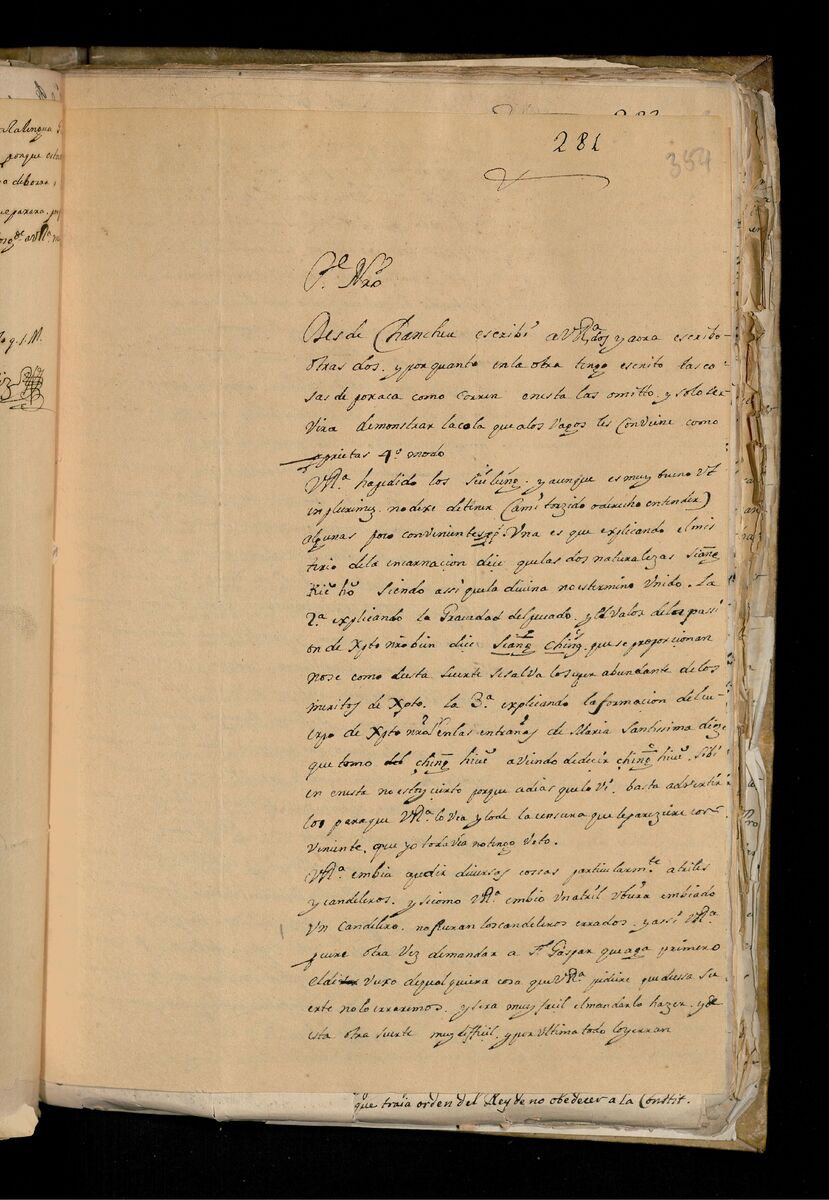 281
354
P.e Nro
Desde Chancheu escribi a VR.a dos y aora escribo
otras dos. y por quanto en la otra tengo escrito las co-
sas de poraca como corren en esta las omitto. y solo ser-
vira demonstrar la cola que a los vagos les conviene como
aprietas 4.º modo
VR.a ha pedido los y aunque es muy bueno vt
in plurimuz no dexe de tener (a mi torzido o derecho entender)
algunas poco convenientes. Vna es que explicando el mis
terio de la encarnacion dice que las dos naturalezas siang
kie ho siendo assi que la divina no es termino vnido. La
2.a explicando la Gravedad del pecado. y el valor de la passi
on de Xpto nro bien dice siang ching que se proporcionan
no se como de esta suerte se salva lo super abundante de los
meritos de Xpto. la 3.a explicando la formacion del cu-
erpo de Xpto nro S.r en las entrañas de Maria Santissima dize
que tomo ching hiue aviendo de decir ching hiue. Si bi
en en esta no estoy cierto porque a dias que lo vi. basta advertir
lo para que VR.a lo vea y lo de la censura que le pareziere con-
veniente, que yo todavia no tengo voto.
VR.a embia a pedir diversas cossas particularm.te atriles
y candeleros. y si como VR.a embio vn atril vbiera embiado
vn candelero. no fueran los candeleros errados. y assi VR.a
puere otra vez demandar a Fr. Gaspar que aga primero
el divuxo de qual quiera cosa que VR.a pidiere que de essa su-
erte no lo erraremos. y sera muy facil el mandarlo hazer. y de
esta otra suerte muy dificil. y por vltimo todo lo yerran
que traia orden del Rey de no obedecer a la Constit.